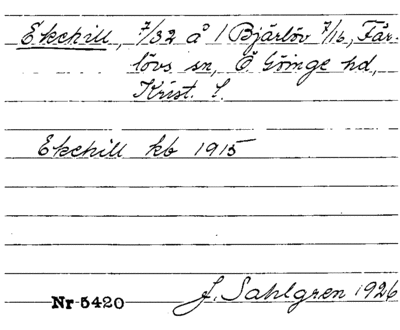 Ekehill, 7/32 å 1 Bjärlöv 7/16, Fär-
lövs sn, Ö Göinge hd,
Krist. l.
Ekehill kb 1915
Nr 5420 J. Sahlgren 1926